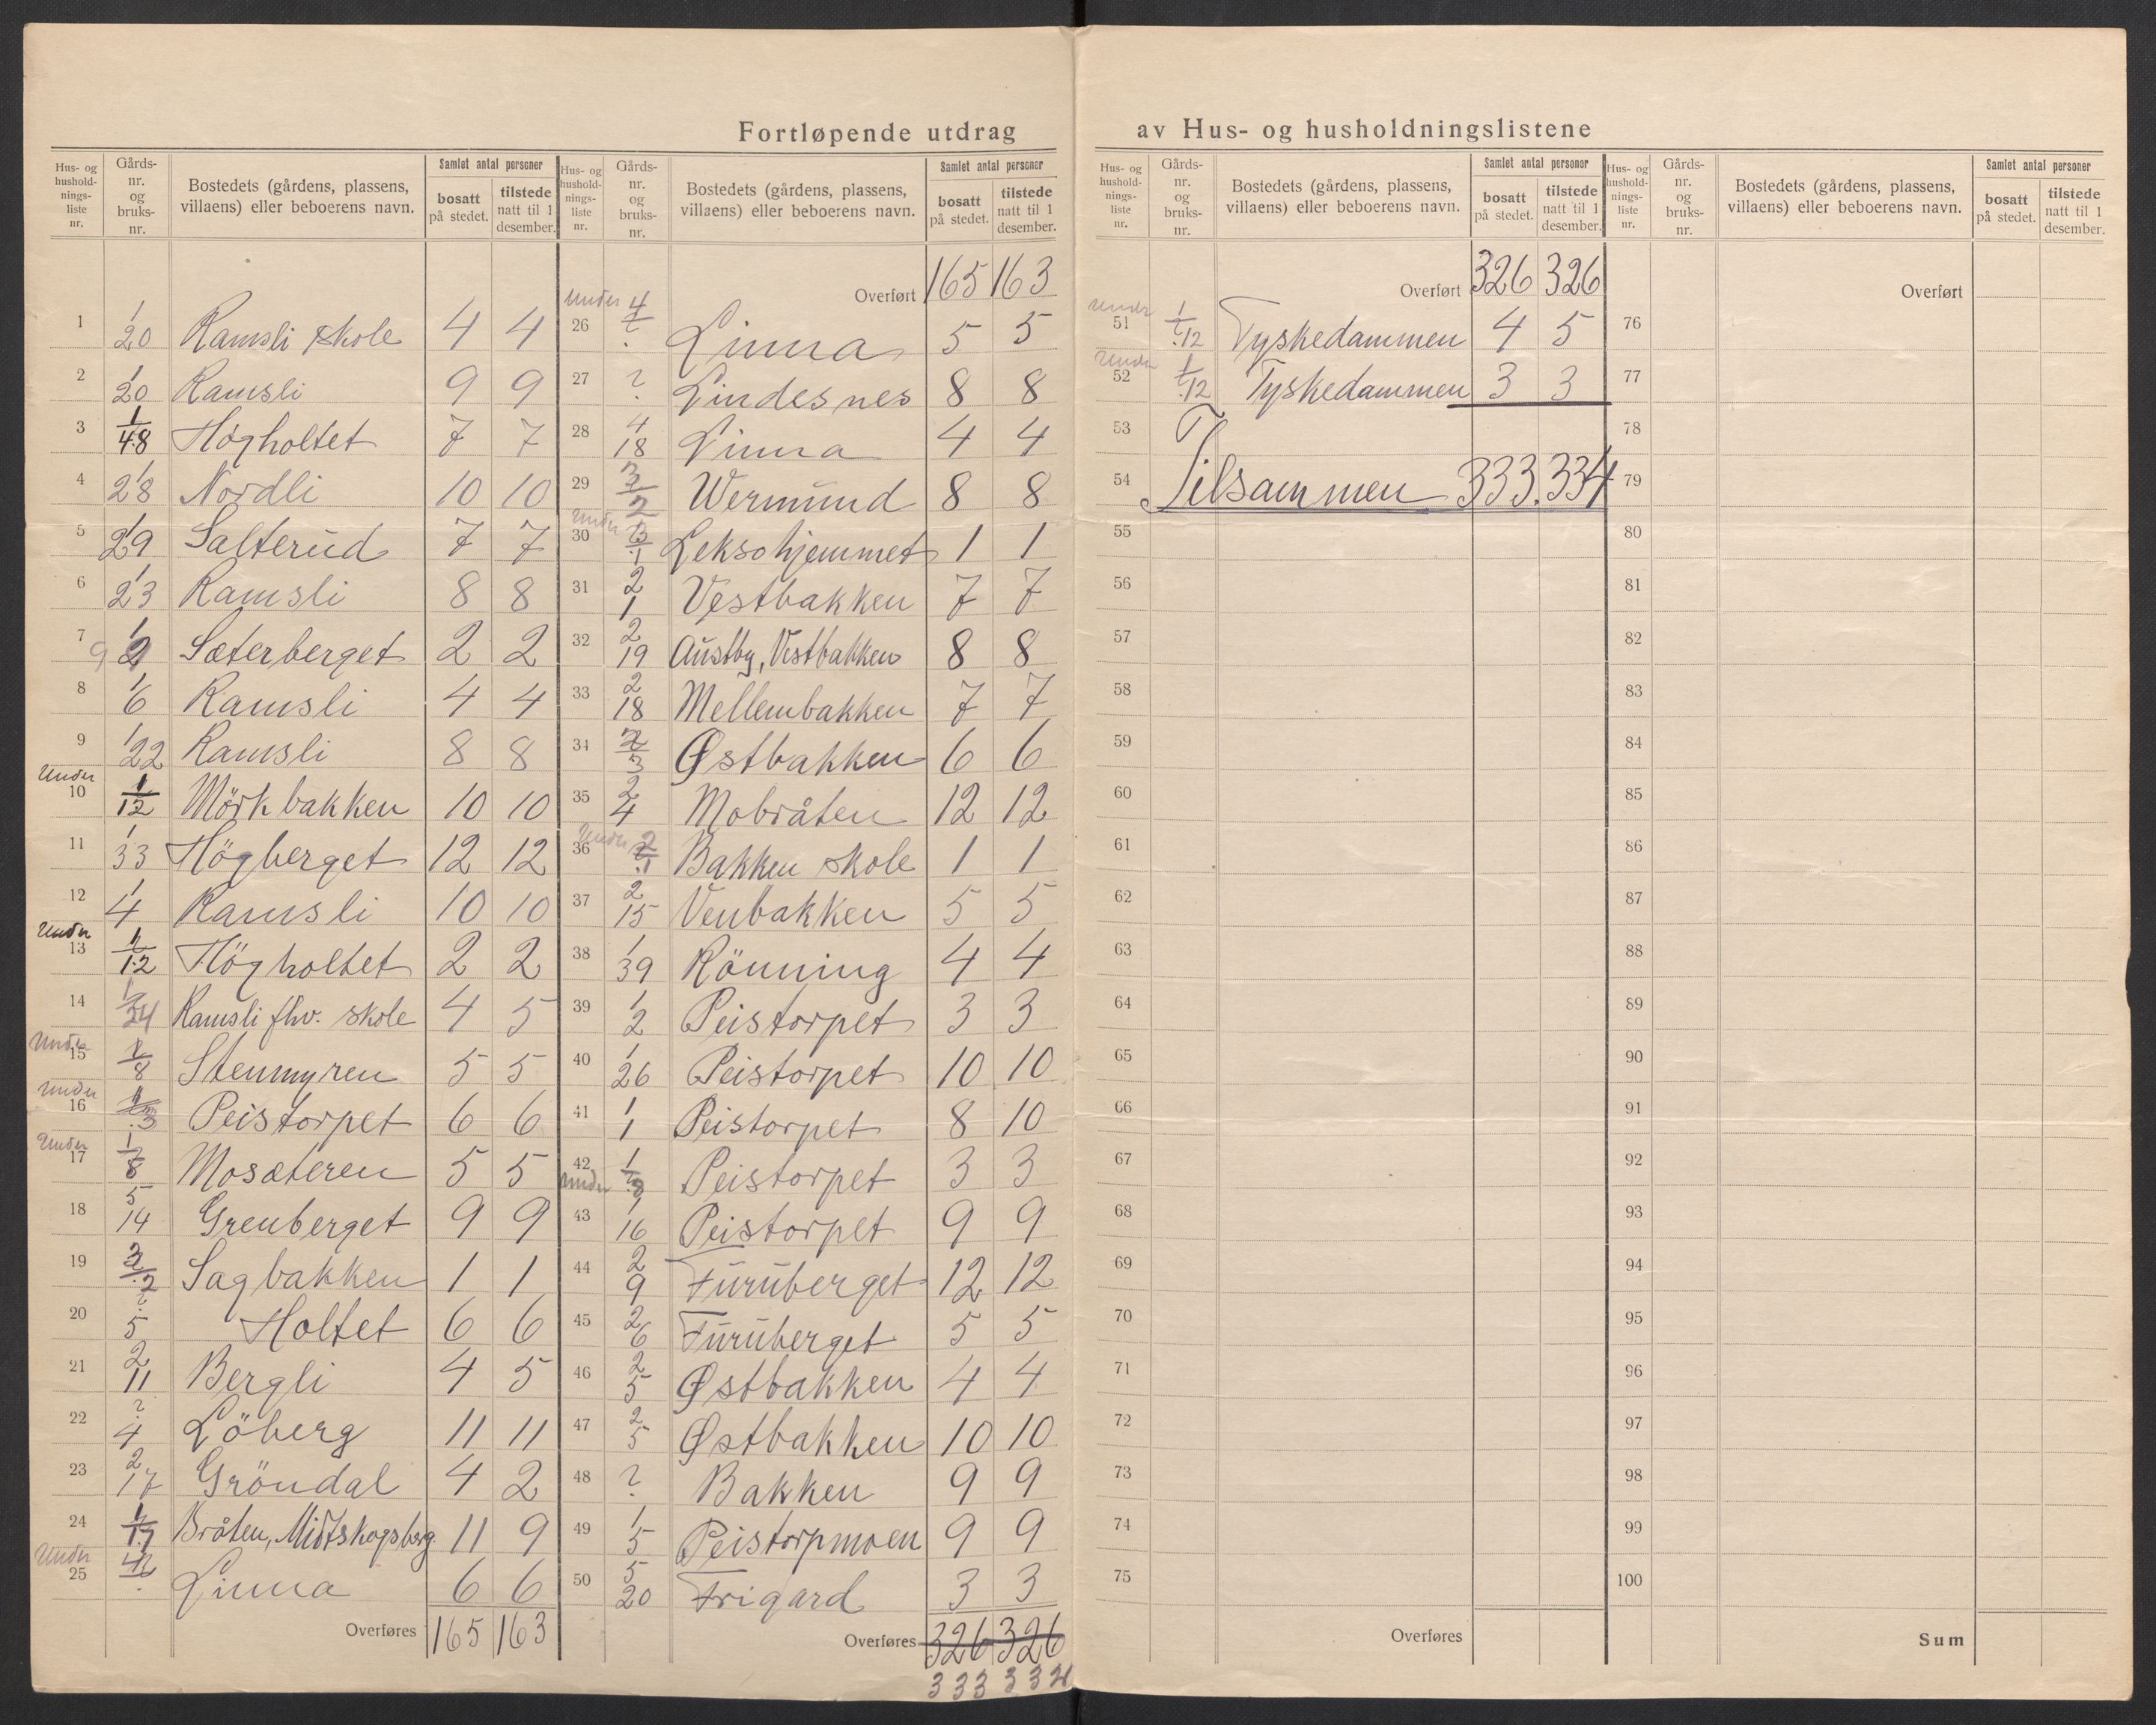 Fortløpende utdrag av Hus- og husholdningslistene
Hus- og husholdnings-liste nr. Gårds-nr. og bruks-nr. Bostedets (gårdens, plassens, villaens) eller beboerens navn. Samlet antal personer bosatt på stedet. tilstede natt til 1 desember.
1 1/20 Ramsli skole 4 4
2 1/20 Ramsli 9 9
3 1/48 Högholtet 7 7
4 1/28 Nordli 10 10
5 1/29 Salterud 7 7
6 1/23 Ramsli 8 8
7 1/9 Sæterberget 2 2
8 1/6 Ramsli 4 4
9 1/22 Ramsli 8 8
Under 10 1/12 Mörkbakken 10 10
11 1/33 Högberget 12 12
12 1/4 Ramsli 10 10
Under 13 1/12 Högholtet 2 2
14 1/34 Ramsli fhv. skole 4 5
Under 15 1/8 Stenmyren 5 5
Under 16 1/3 Peistorpet 6 6
Under 17 1/8 Mosæteren 5 5
18 5/14 Grenberget 9 9
19 2/2 Sagbakken 1 1
20 ?/5 Holtet 6 6
21 2/11 Bergli 4 5
22 ?/4 Löberg 11 11
23 2/17 Gröndal 4 2
24 1/17 Bråten, Midtskogsberg. 11 9
Under 25 4/? Linna 6 6
Overføres 165 163
Hus- og husholdnings-liste nr. Gårds-nr. og bruks-nr. Bostedets (gårdens, plassens, villaens) eller beboerens navn. Samlet antal personer bosatt på stedet. tilstede natt til 1 desember.
Overført 165 163
Under 26 4/? Linna 5 5
27 ? Lindesnes 8 8
28 4/18 Linna 4 4
29 3/2 Wermund 8 8
Under 30 3/1 Leksohjemmet 1 1
31 2/1 Vestbakken 7 7
32 2/19 Austby, Vestbakken 8 8
33 2/18 Mellembakken 7 7
34 2/3 Østbakken 6 6
35 2/4 Mobråten 12 12
Under 36 2/1 Bakken skole 1 1
37 2/15 Venbakken 5 5
38 1/39 Rönning 4 4
39 1/2 Peistorpet 3 3
40 1/26 Peistorpet 10 10
41 1/1 Peistorpet 8 10
42 under 1/8 Peistorpet 3 3
43 1/16 Peistorpet 9 9
44 2/9 Furuberget 12 12
45 2/6 Furuberget 5 5
46 2/5 Østbakken 4 4
47 2/5 Østbakken 10 10
48 ? Bakken 9 9
49 1/5 Peistorpmoen 9 9
50 5/20 Frigard 3 3
Overføres 326 326
333 334
Hus- og husholdnings-liste nr. Gårds-nr. og bruks-nr. Bostedets (gårdens, plassens, villaens) eller beboerens navn. Samlet antal personer bosatt på stedet. tilstede natt til 1 desember.
Overført 326 326
Under 51 1/12 Tyskedammen 4 5
Under 52 1/12 Tyskedammen 3 3
53
54 Tilsammen 333. 334
55
56
57
58
59
60
61
62
63
64
65
66
67
68
69
70
71
72
73
74
75
Overføres
Hus- og husholdnings-liste nr. Gårds-nr. og bruks-nr. Bostedets (gårdens, plassens, villaens) eller beboerens navn. Samlet antal personer bosatt på stedet. tilstede natt til 1 desember.
Overført
76
77
78
79
80
81
82
83
84
85
86
87
88
89
90
91
92
93
94
95
96
97
98
99
100
Sum